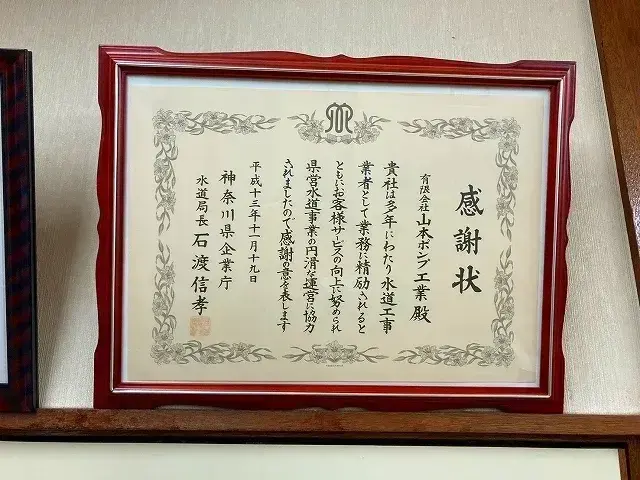 感謝状
有限会社 山本ポンプ工業 殿
貴社は多年にわたり水道工事
業者として業務に精励されると
ともにお客様サービスの向上に努められ
県営水道事業の円滑な運営に協力
されましたので感謝の意を表します
平成十三年十一月十九日
神奈川県企業庁
水道局長 石渡信孝